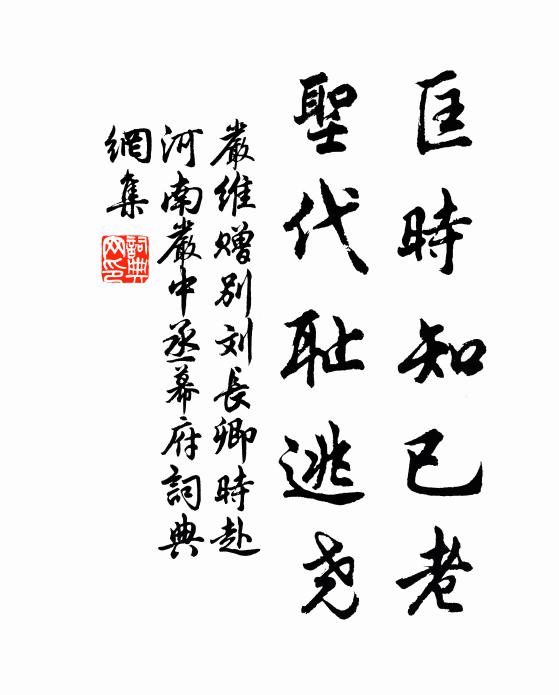 匡時知已老
聖代耻逃尧
嚴維贈别刘長卿時赴
河南嚴中丞幕府詞典
網集
詞典
网印